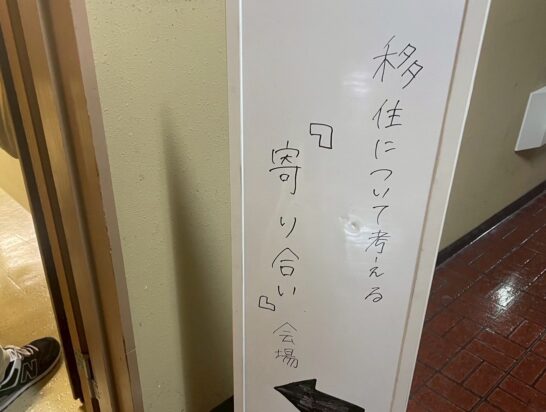 移住について考える
『寄り合い』会場
N